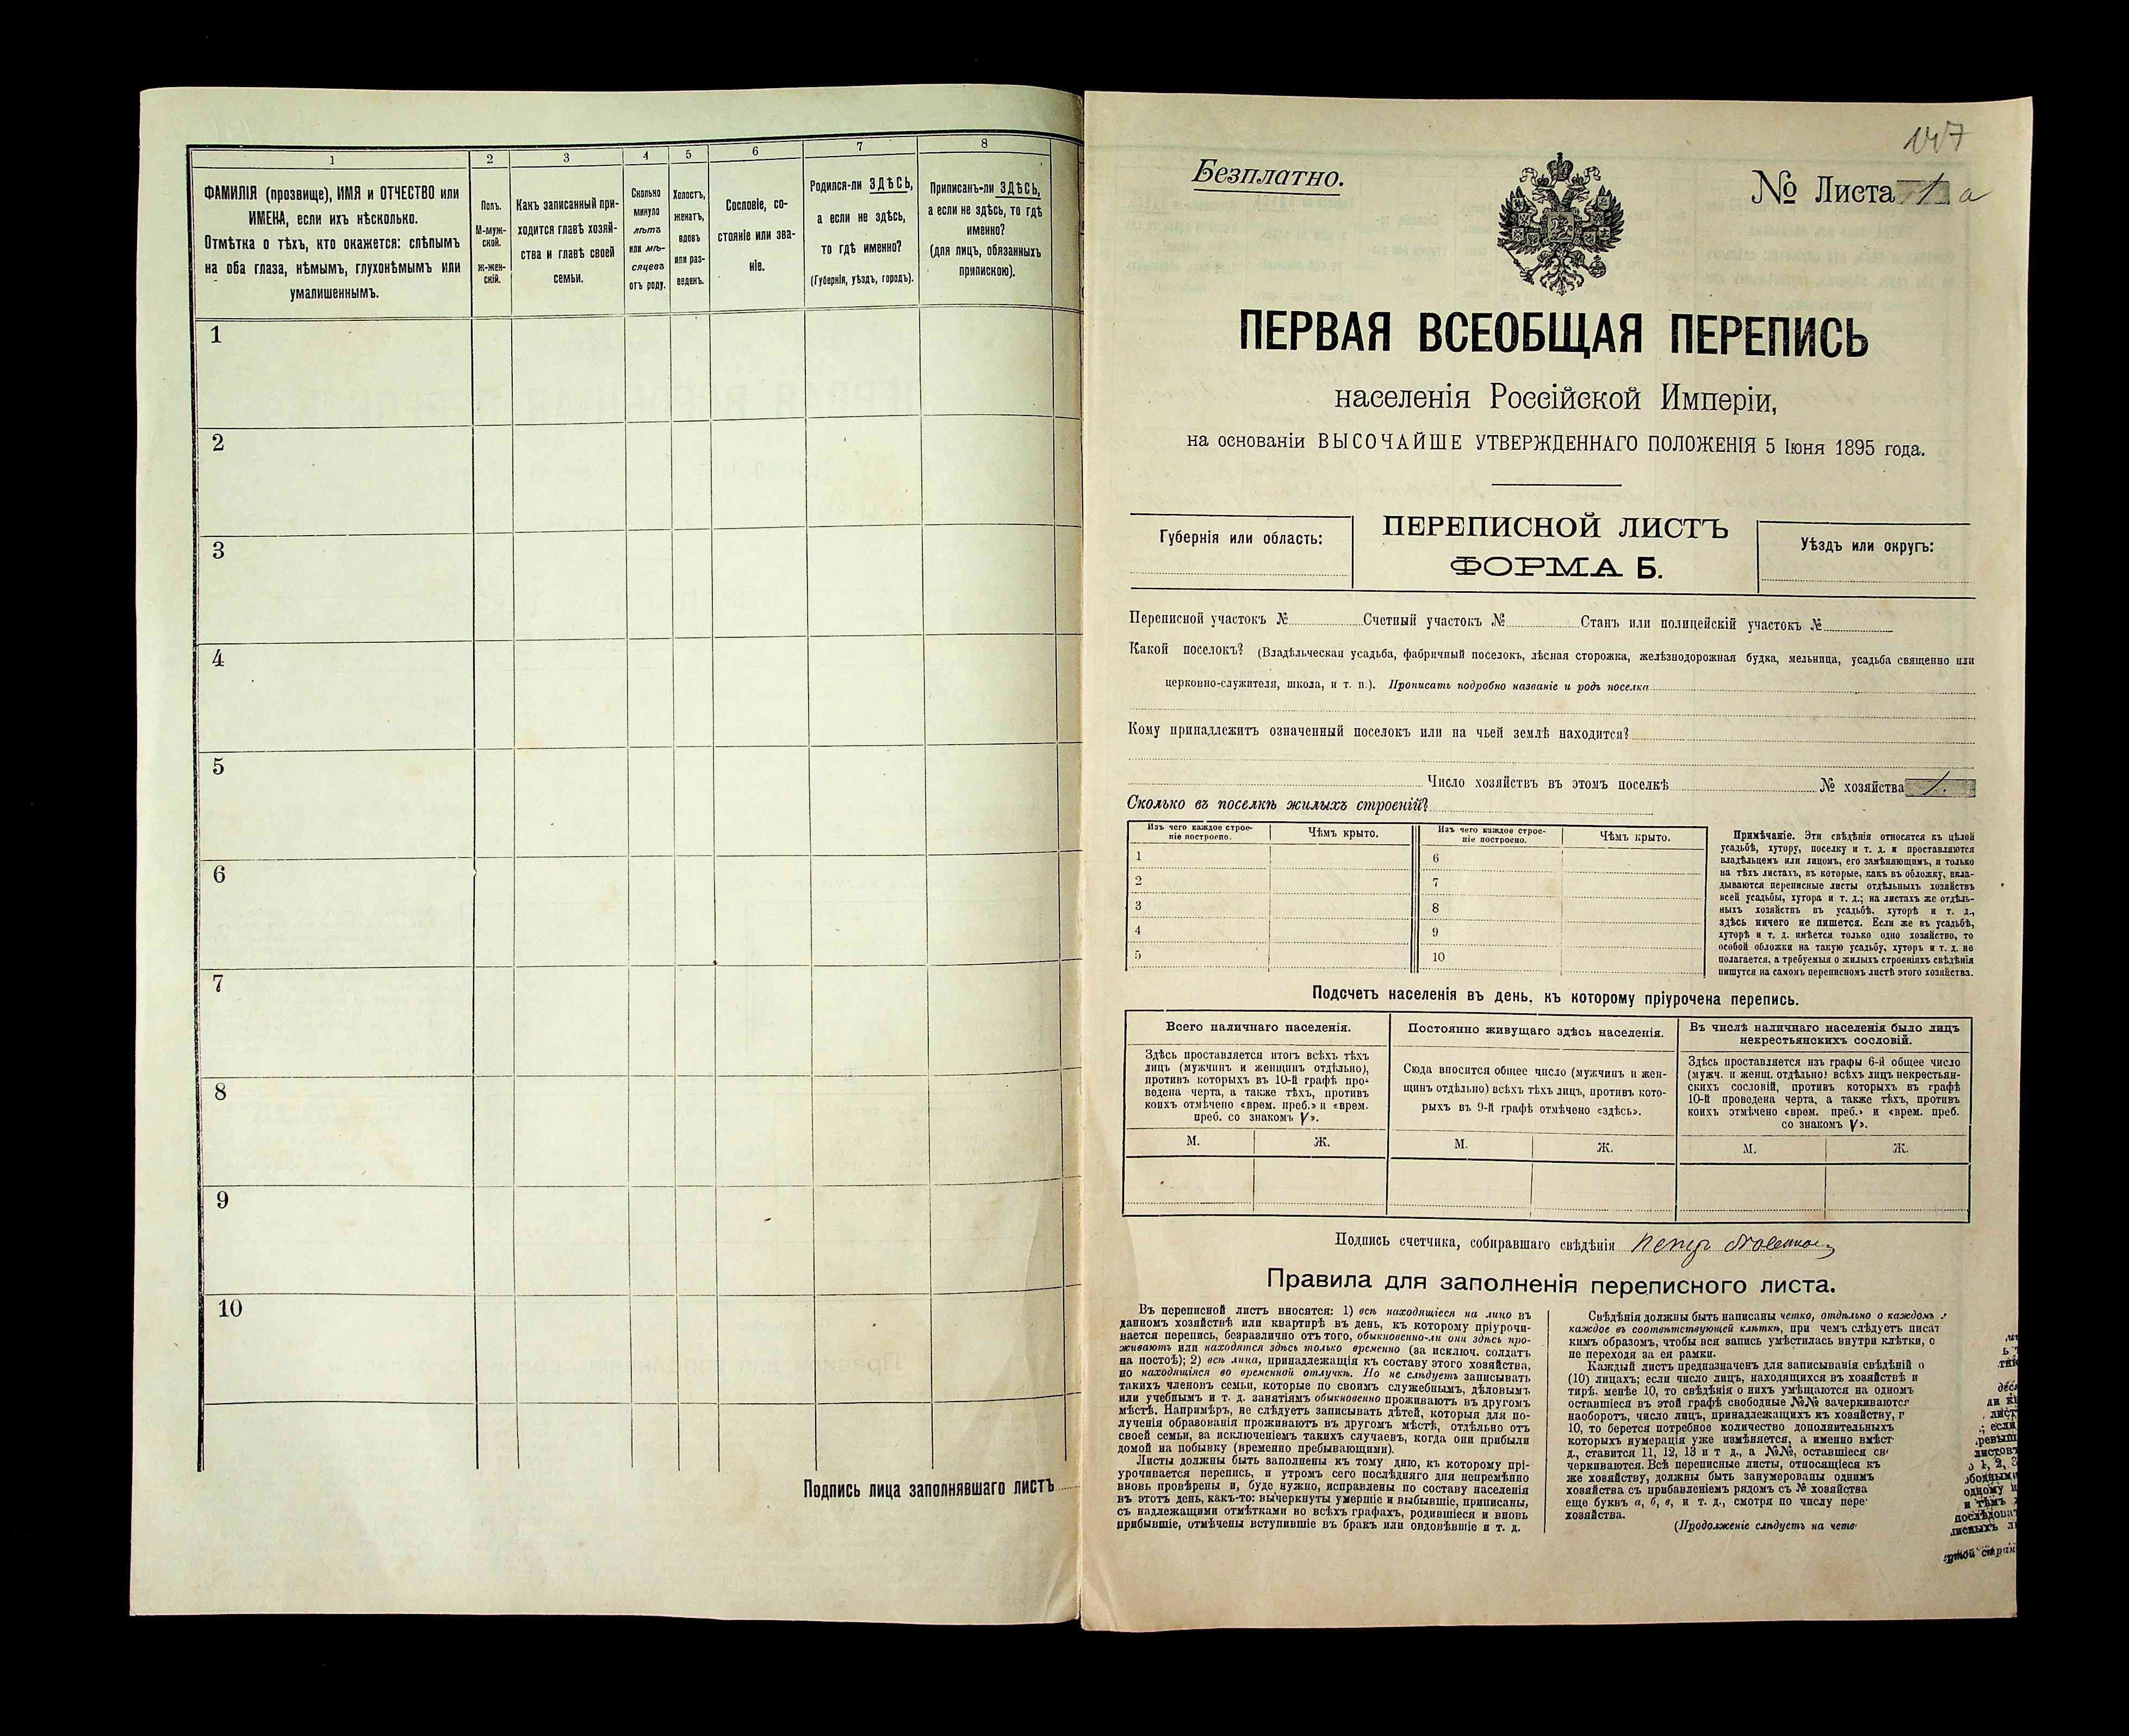 1 2 3 4 5 6 7 8
ФАМИЛІЯ (прозвище), ИМЯ и ОТЧЕСТВО или
ИМЕНА, если ихъ нѣсколько.
Отмѣтка о тѣхъ, кто окажется: слѣпымъ
на оба глаза, нѣмымъ, глухонѣмымъ или
умалишеннымъ.
Полъ.
М-муж-
ской.
Ж-жен-
скій.
Какъ записанный при-
ходится главѣ хозяй-
ства и главѣ своей
семьи.
Сколько
минуло
лѣтъ
или мѣ-
сяцевъ
отъ роду.
Холостъ,
женатъ,
вдовъ
или раз-
веденъ.
Сословіе, со-
стояніе или зва-
ніе.
Родился-ли ЗДѢСЬ,
а если не здѣсь,
то гдѣ именно?
(Губернія, уѣздъ, городъ).
Приписанъ-ли ЗДѢСЬ,
а если не здѣсь, то гдѣ
именно?
(для лицъ, обязанныхъ
припискою).
1
2
3
4
5
6
7
8
9
10
Подпись лица заполнявшаго листъ
147
Безплатно.
№ Листа 1 а
ПЕРВАЯ ВСЕОБЩАЯ ПЕРЕПИСЬ
населенія Россійской Имперіи,
на основаніи ВЫСОЧАЙШЕ УТВЕРЖДЕННАГО ПОЛОЖЕНІЯ 5 Іюня 1895 года.
Губернія или область:
ПЕРЕПИСНОЙ ЛИСТЪ
ФОРМА Б.
Уѣздъ или округъ:
Переписной участокъ № Счетный участокъ № Станъ или полицейскій участокъ №
Какой поселокъ? (Владѣльческая усадьба, фабричный поселокъ, лѣсная сторожка, желѣзнодорожная будка, мельница, усадьба священно или
церковно-служителя, школа, и т. п.). Прописать подробно названіе и родъ поселка
Кому принадлежитъ означенный поселокъ или на чьей землѣ находится?
Число хозяйствъ въ этомъ поселкѣ № хозяйства 1.
Сколько въ поселкѣ жилыхъ строеній?
Изъ чего каждое строе-
ніе построено.
Чѣмъ крыто.
Изъ чего каждое строе-
ніе построено.
Чѣмъ крыто.
1 6
2 7
3 8
4 9
5 10
Примѣчаніе. Эти свѣдѣнія относятся къ цѣлой
усадьбѣ, хутору, поселку и т. д. и проставляются
владѣльцемъ или лицомъ, его замѣняющимъ, и только
на тѣхъ листахъ, въ которые, какъ въ обложку, вкла-
дываются переписные листы отдѣльныхъ хозяйствъ
всей усадьбы, хутора и т. д.; на листахъ же отдѣль-
ныхъ хозяйствъ въ усадьбѣ, хуторѣ и т. д.,
здѣсь ничего не пишется. Если же въ усадьбѣ,
хуторѣ и т. д. имѣется только одно хозяйство, то
особой обложки на такую усадьбу, хуторъ и т. д. не
полагается, а требуемыя о жилыхъ строеніяхъ свѣдѣнія
пишутся на самомъ переписномъ листѣ этого хозяйства.
Подсчетъ населенія въ день, къ которому пріурочена перепись.
Всего наличнаго населенія.
Здѣсь проставляется итогъ всѣхъ тѣхъ
лицъ (мужчинъ и женщинъ отдѣльно),
противъ которыхъ въ 10-й графѣ про-
ведена черта, а также тѣхъ, противъ
коихъ отмѣчено «врем. преб.» и «врем.
преб. со знакомъ V».
М. Ж.
Постоянно живущаго здѣсь населенія.
Сюда вносится общее число (мужчинъ и жен-
щинъ отдѣльно) всѣхъ тѣхъ лицъ, противъ кото-
рыхъ въ 9-й графѣ отмѣчено «здѣсь».
М. Ж.
Въ числѣ наличнаго населенія было лицъ
некрестьянскихъ сословій.
Здѣсь проставляется изъ графы 6-й общее число
(мужч. и женщ. отдѣльно) всѣхъ лицъ некрестьян-
скихъ сословій, противъ которыхъ въ графѣ
10-й проведена черта, а также тѣхъ, противъ
коихъ отмѣчено «врем. преб.» и «врем. преб.
со знакомъ V».
М. Ж.
Подпись счетчика, собиравшаго свѣдѣнія Петръ
Правила для заполненія переписного листа.
Въ переписной листъ вносятся: 1) всѣ находящіеся на лицо въ
данномъ хозяйствѣ или квартирѣ въ день, къ которому пріурочи-
вается перепись, безразлично отъ того, обыкновенно-ли они здѣсь про-
живаютъ или находятся здѣсь только временно (за исключ. солдатъ
на постоѣ); 2) всѣ лица, принадлежащія къ составу этого хозяйства,
но находящіяся во временной отлучкѣ. Но не слѣдуетъ записывать
такихъ членовъ семьи, которые по своимъ служебнымъ, дѣловымъ
или учебнымъ и т. д. занятіямъ обыкновенно проживаютъ въ другомъ
мѣстѣ. Напримѣръ, не слѣдуетъ записывать дѣтей, которыя для по-
лученія образованія проживаютъ въ другомъ мѣстѣ, отдѣльно отъ
своей семьи, за исключеніемъ такихъ случаевъ, когда они прибыли
домой на побывку (временно пребывающими).
Листы должны быть заполнены къ тому дню, къ которому прі-
урочивается перепись, и утромъ сего послѣдняго дня непремѣнно
вновь провѣрены и, буде нужно, исправлены по составу населенія
въ этотъ день, какъ-то: вычеркнуты умершіе и выбывшіе, приписаны,
съ надлежащими отмѣтками во всѣхъ графахъ, родившіеся и вновь
прибывшіе, отмѣчены вступившіе въ бракъ или овдовѣвшіе и т. д.
Свѣдѣнія должны быть написаны четко, отдѣльно о каждомъ
каждое въ соотвѣтствующей клѣткѣ, при чемъ слѣдуетъ писат
кимъ образомъ, чтобы вся запись умѣстилась внутри клѣтки, о
не переходя за ея рамки.
Каждый листъ предназначенъ для записыванія свѣдѣній о
(10) лицахъ; если число лицъ, находящихся въ хозяйствѣ и
тирѣ, менѣе 10, то свѣдѣнія о нихъ умѣщаются на одномъ
оставшіеся въ этой графѣ свободные №№ зачеркиваются
наоборотъ, число лицъ, принадлежащихъ къ хозяйству, г
10, то берется потребное количество дополнительныхъ
которыхъ нумерація уже измѣняется, а именно вмѣст
д., ставится 11, 12, 13 и т д., а №№, оставшіеся св
черкиваются. Всѣ переписные листы, относящіеся къ
же хозяйству, должны быть занумерованы однимъ
хозяйства съ прибавленіемъ рядомъ съ № хозяйства
еще буквъ а, б, в, и т. д., смотря по числу пере
хозяйства.
(Продолженіе слѣдуетъ на четв